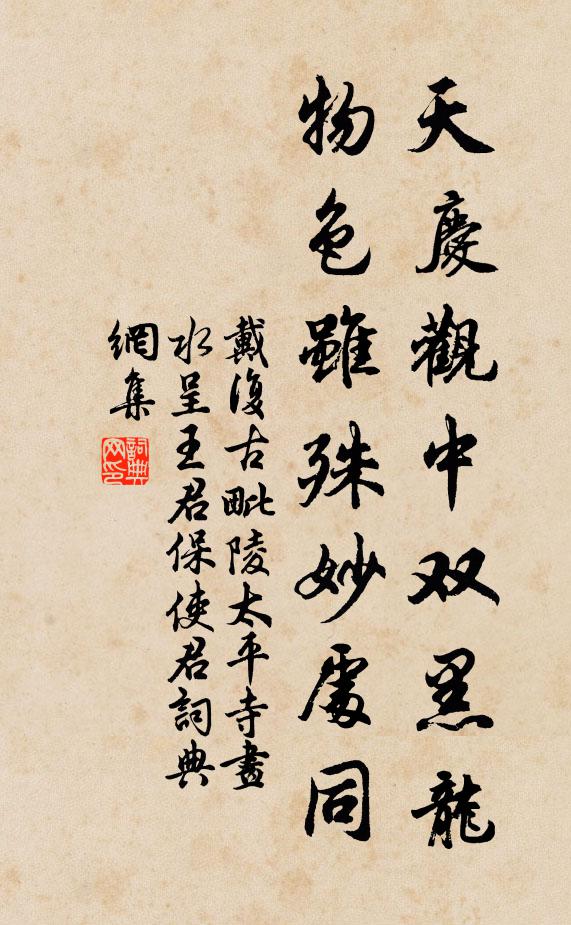 天慶觀中双黑龍
物色雖殊妙處同
戴復古毗陵太平寺畫
水呈王君保使君詞典
網集
詞典
网印